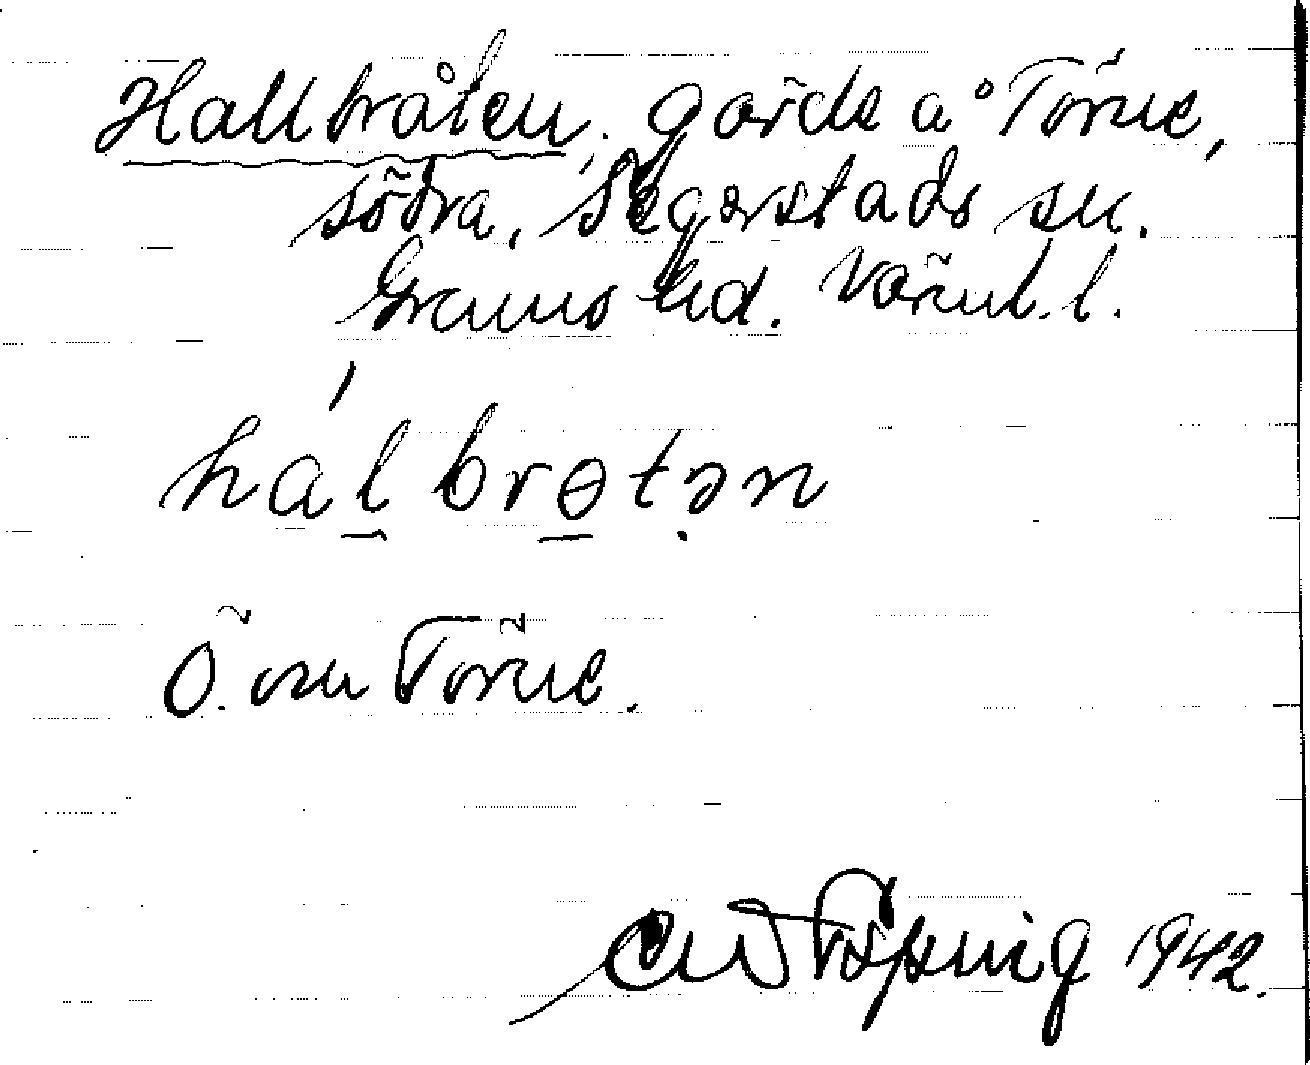 Hallbråten, gärde å Törne,
södra, Segerstads sn.
Grums hd. Värml. l.
halbrɵtən
Ö. om Törne.
1942.